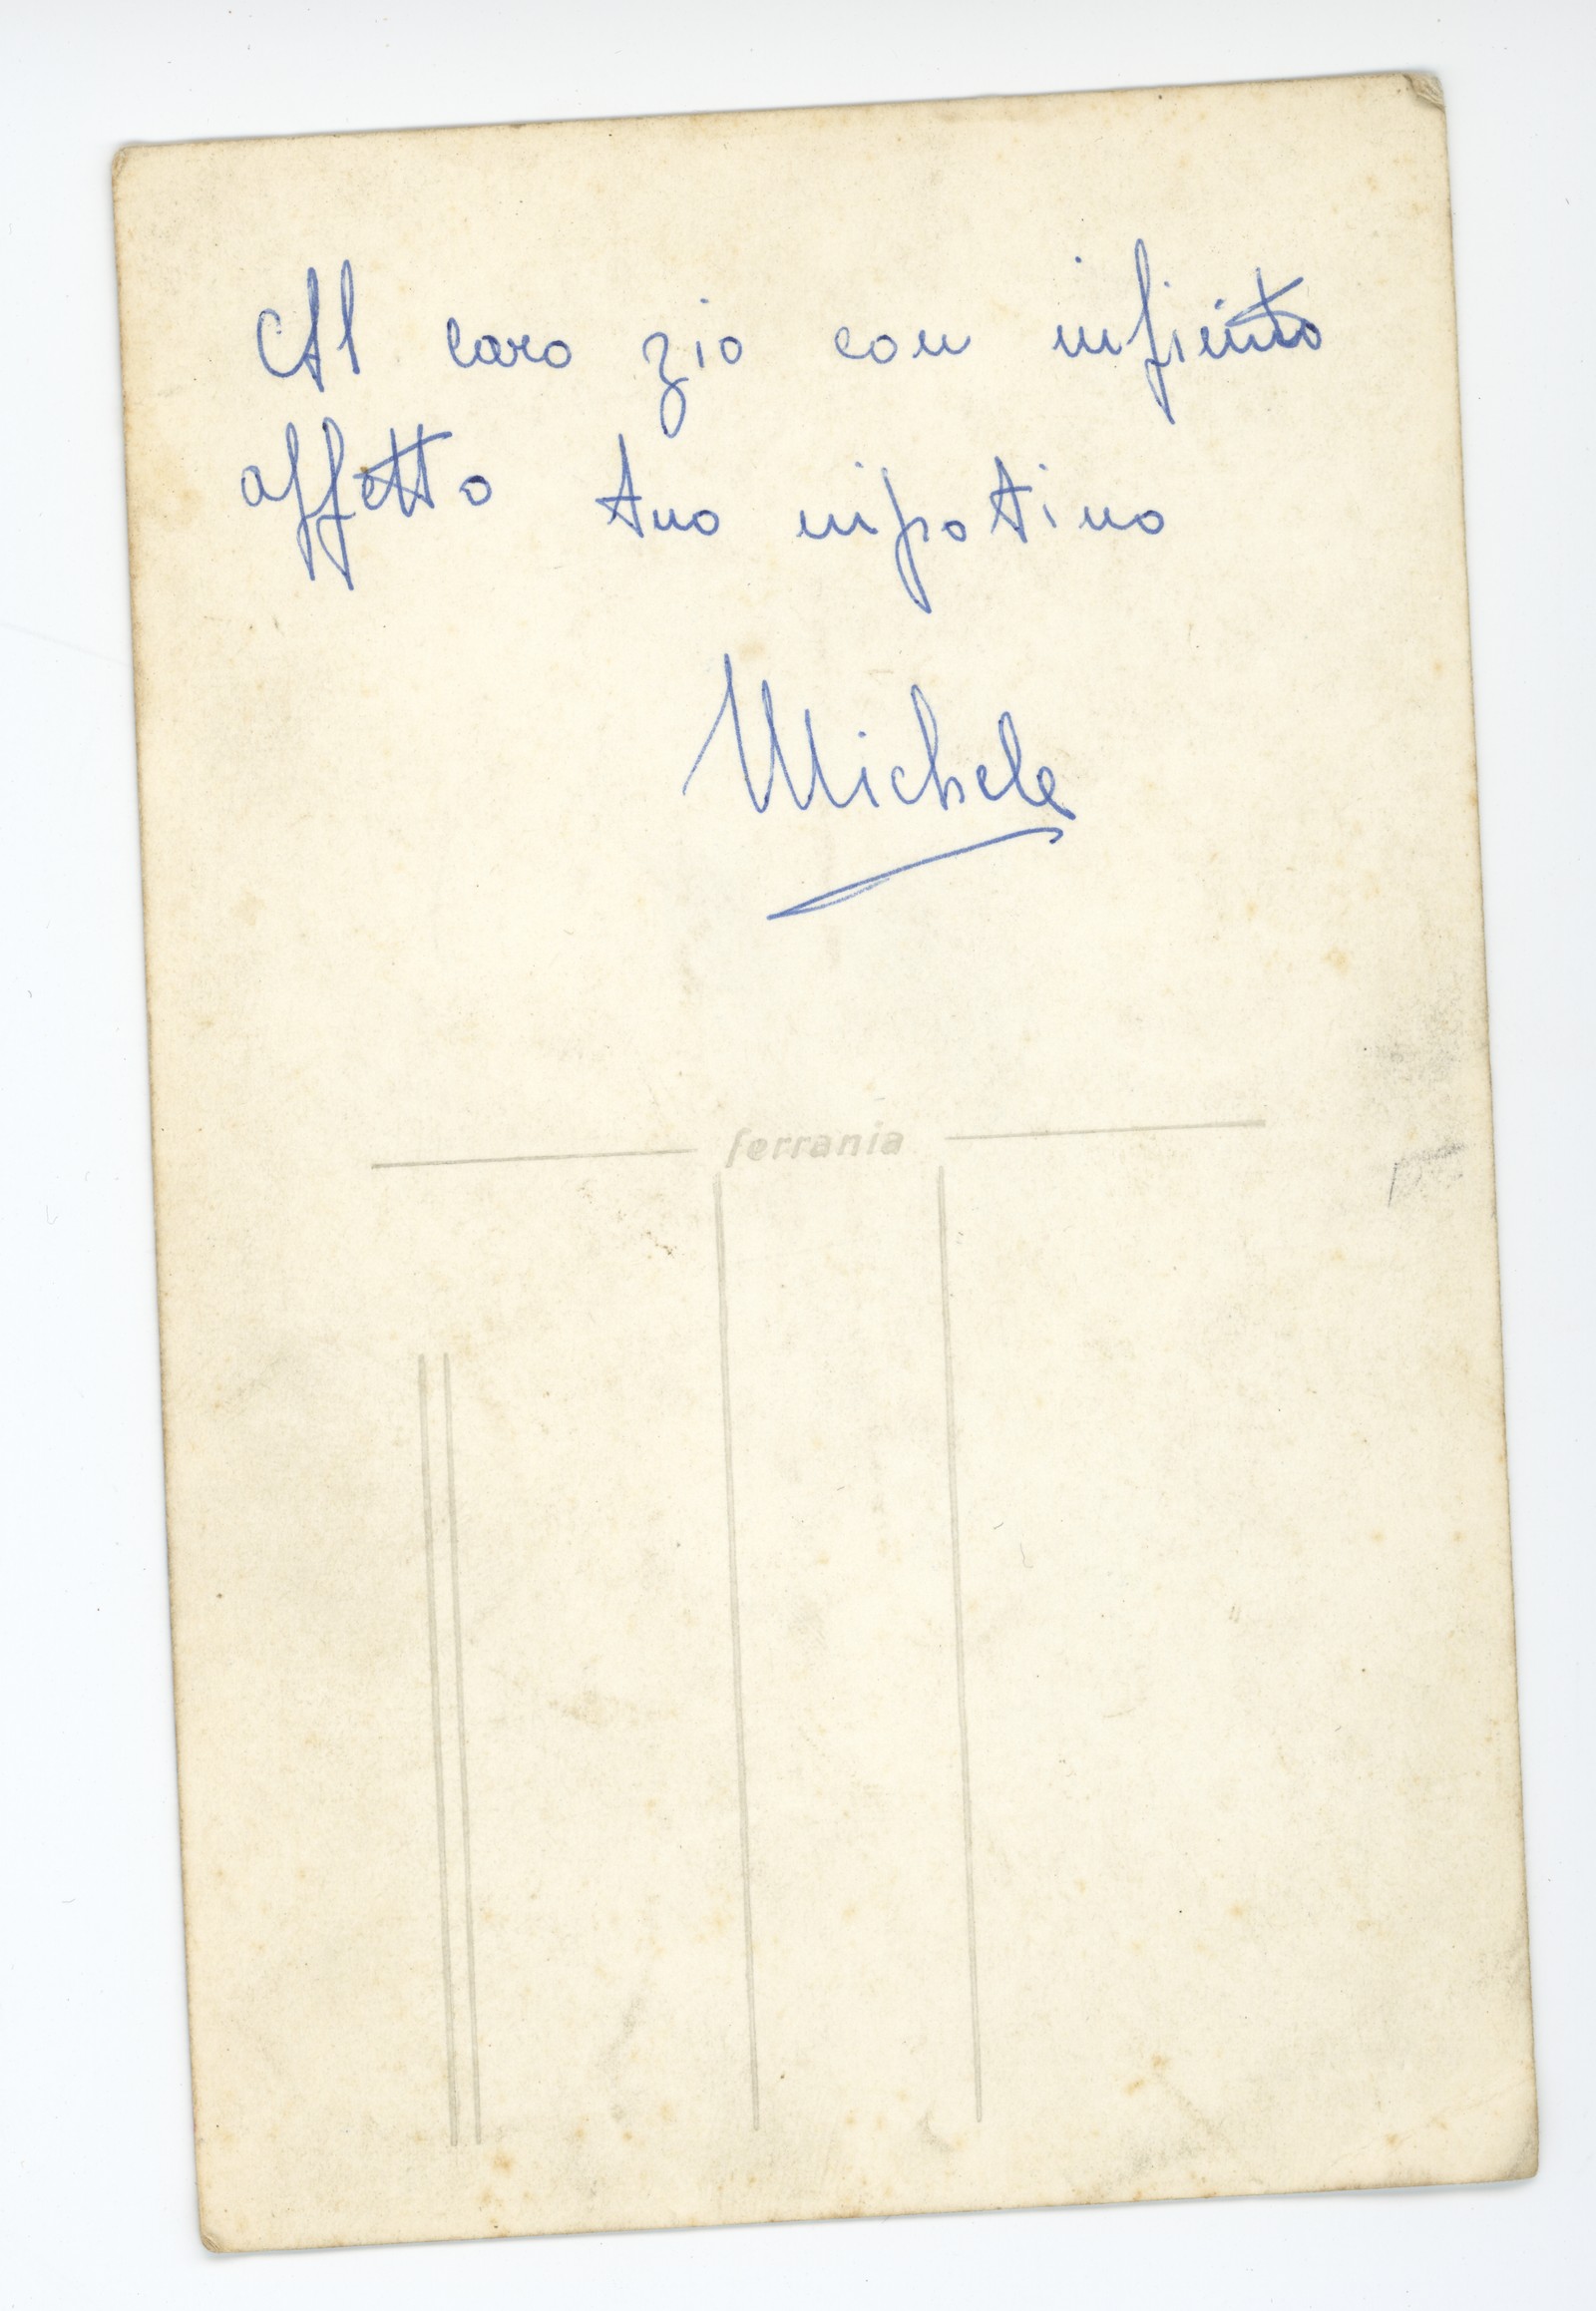 Al caro zio con infinito
affetto tuo nipotino
Michele
ferrania